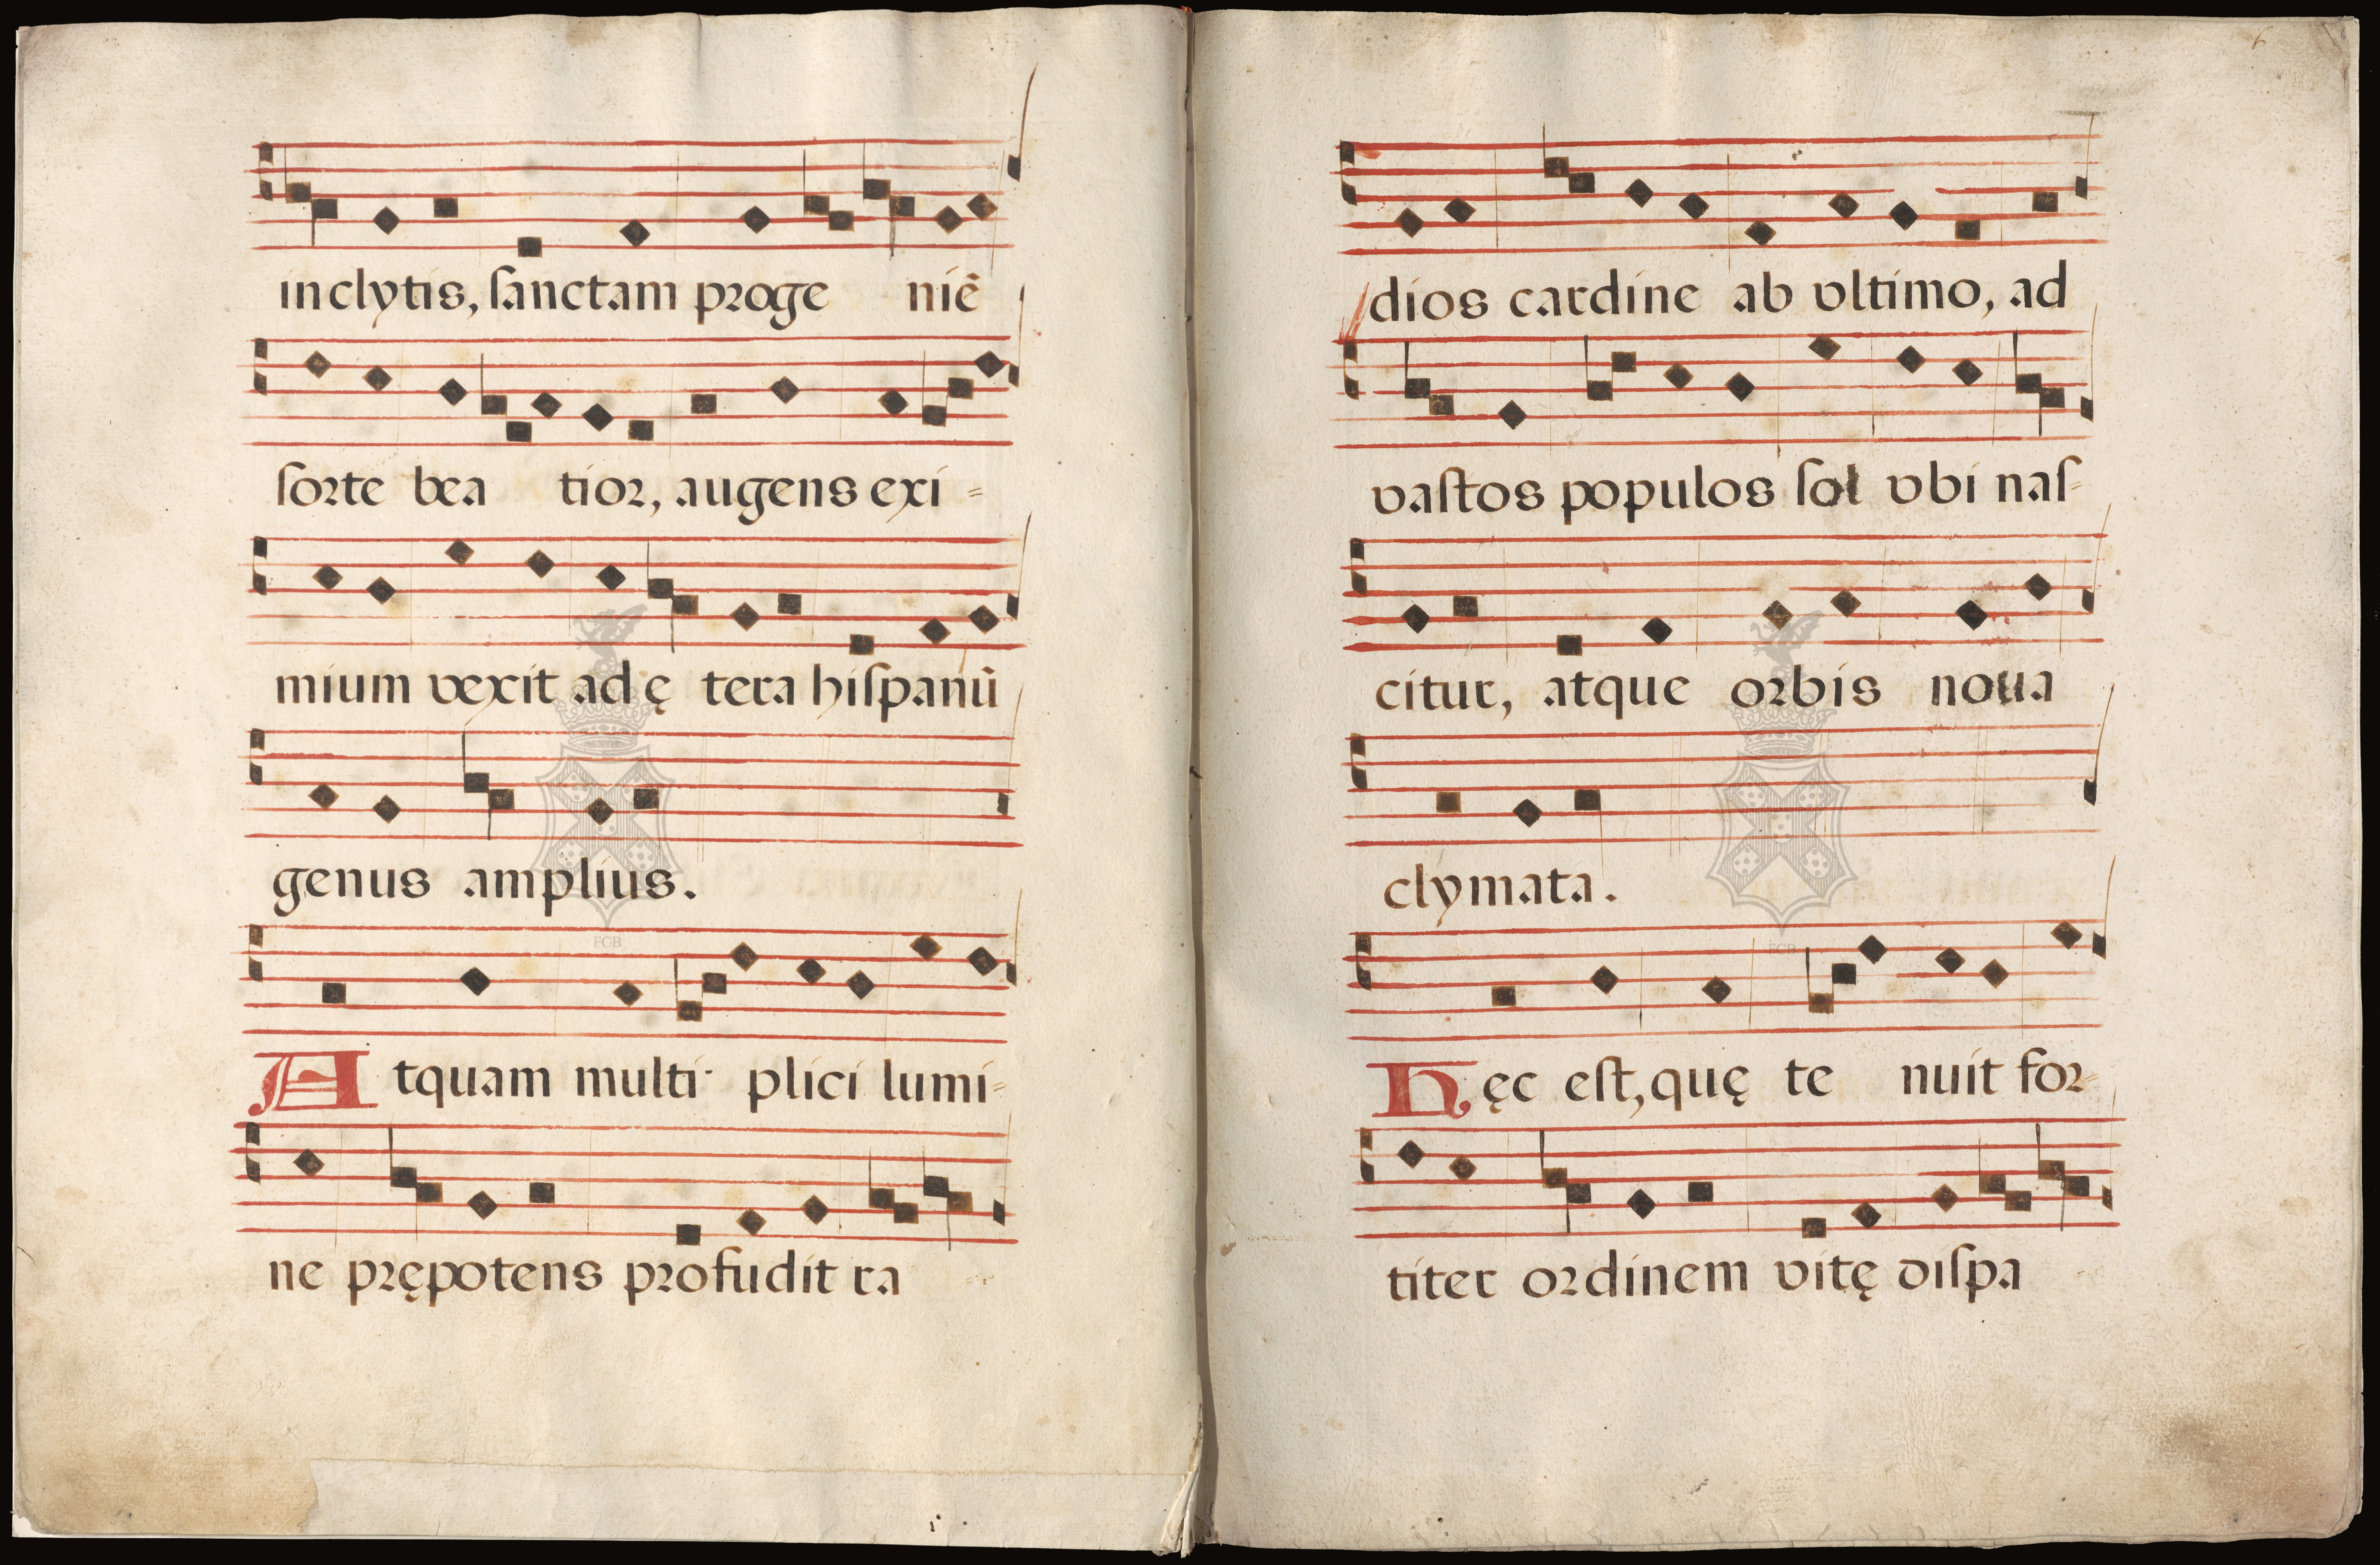 inclytis, ſanctam proge niē
ſorte bea tior, augens exi=
mium vexit ad ę tera hiſpanū
genus amplius.
Atquam multi plici lumi=
ne prępotens profudit ra
6
dios cardine ab vltimo, ad
vaſtos populos ſol vbi naſ=
citur, atque orbis noua
clymata.
Hęc eſt, quę te nuit for=
titer ordinem vitę diſpa
FCB
FCB